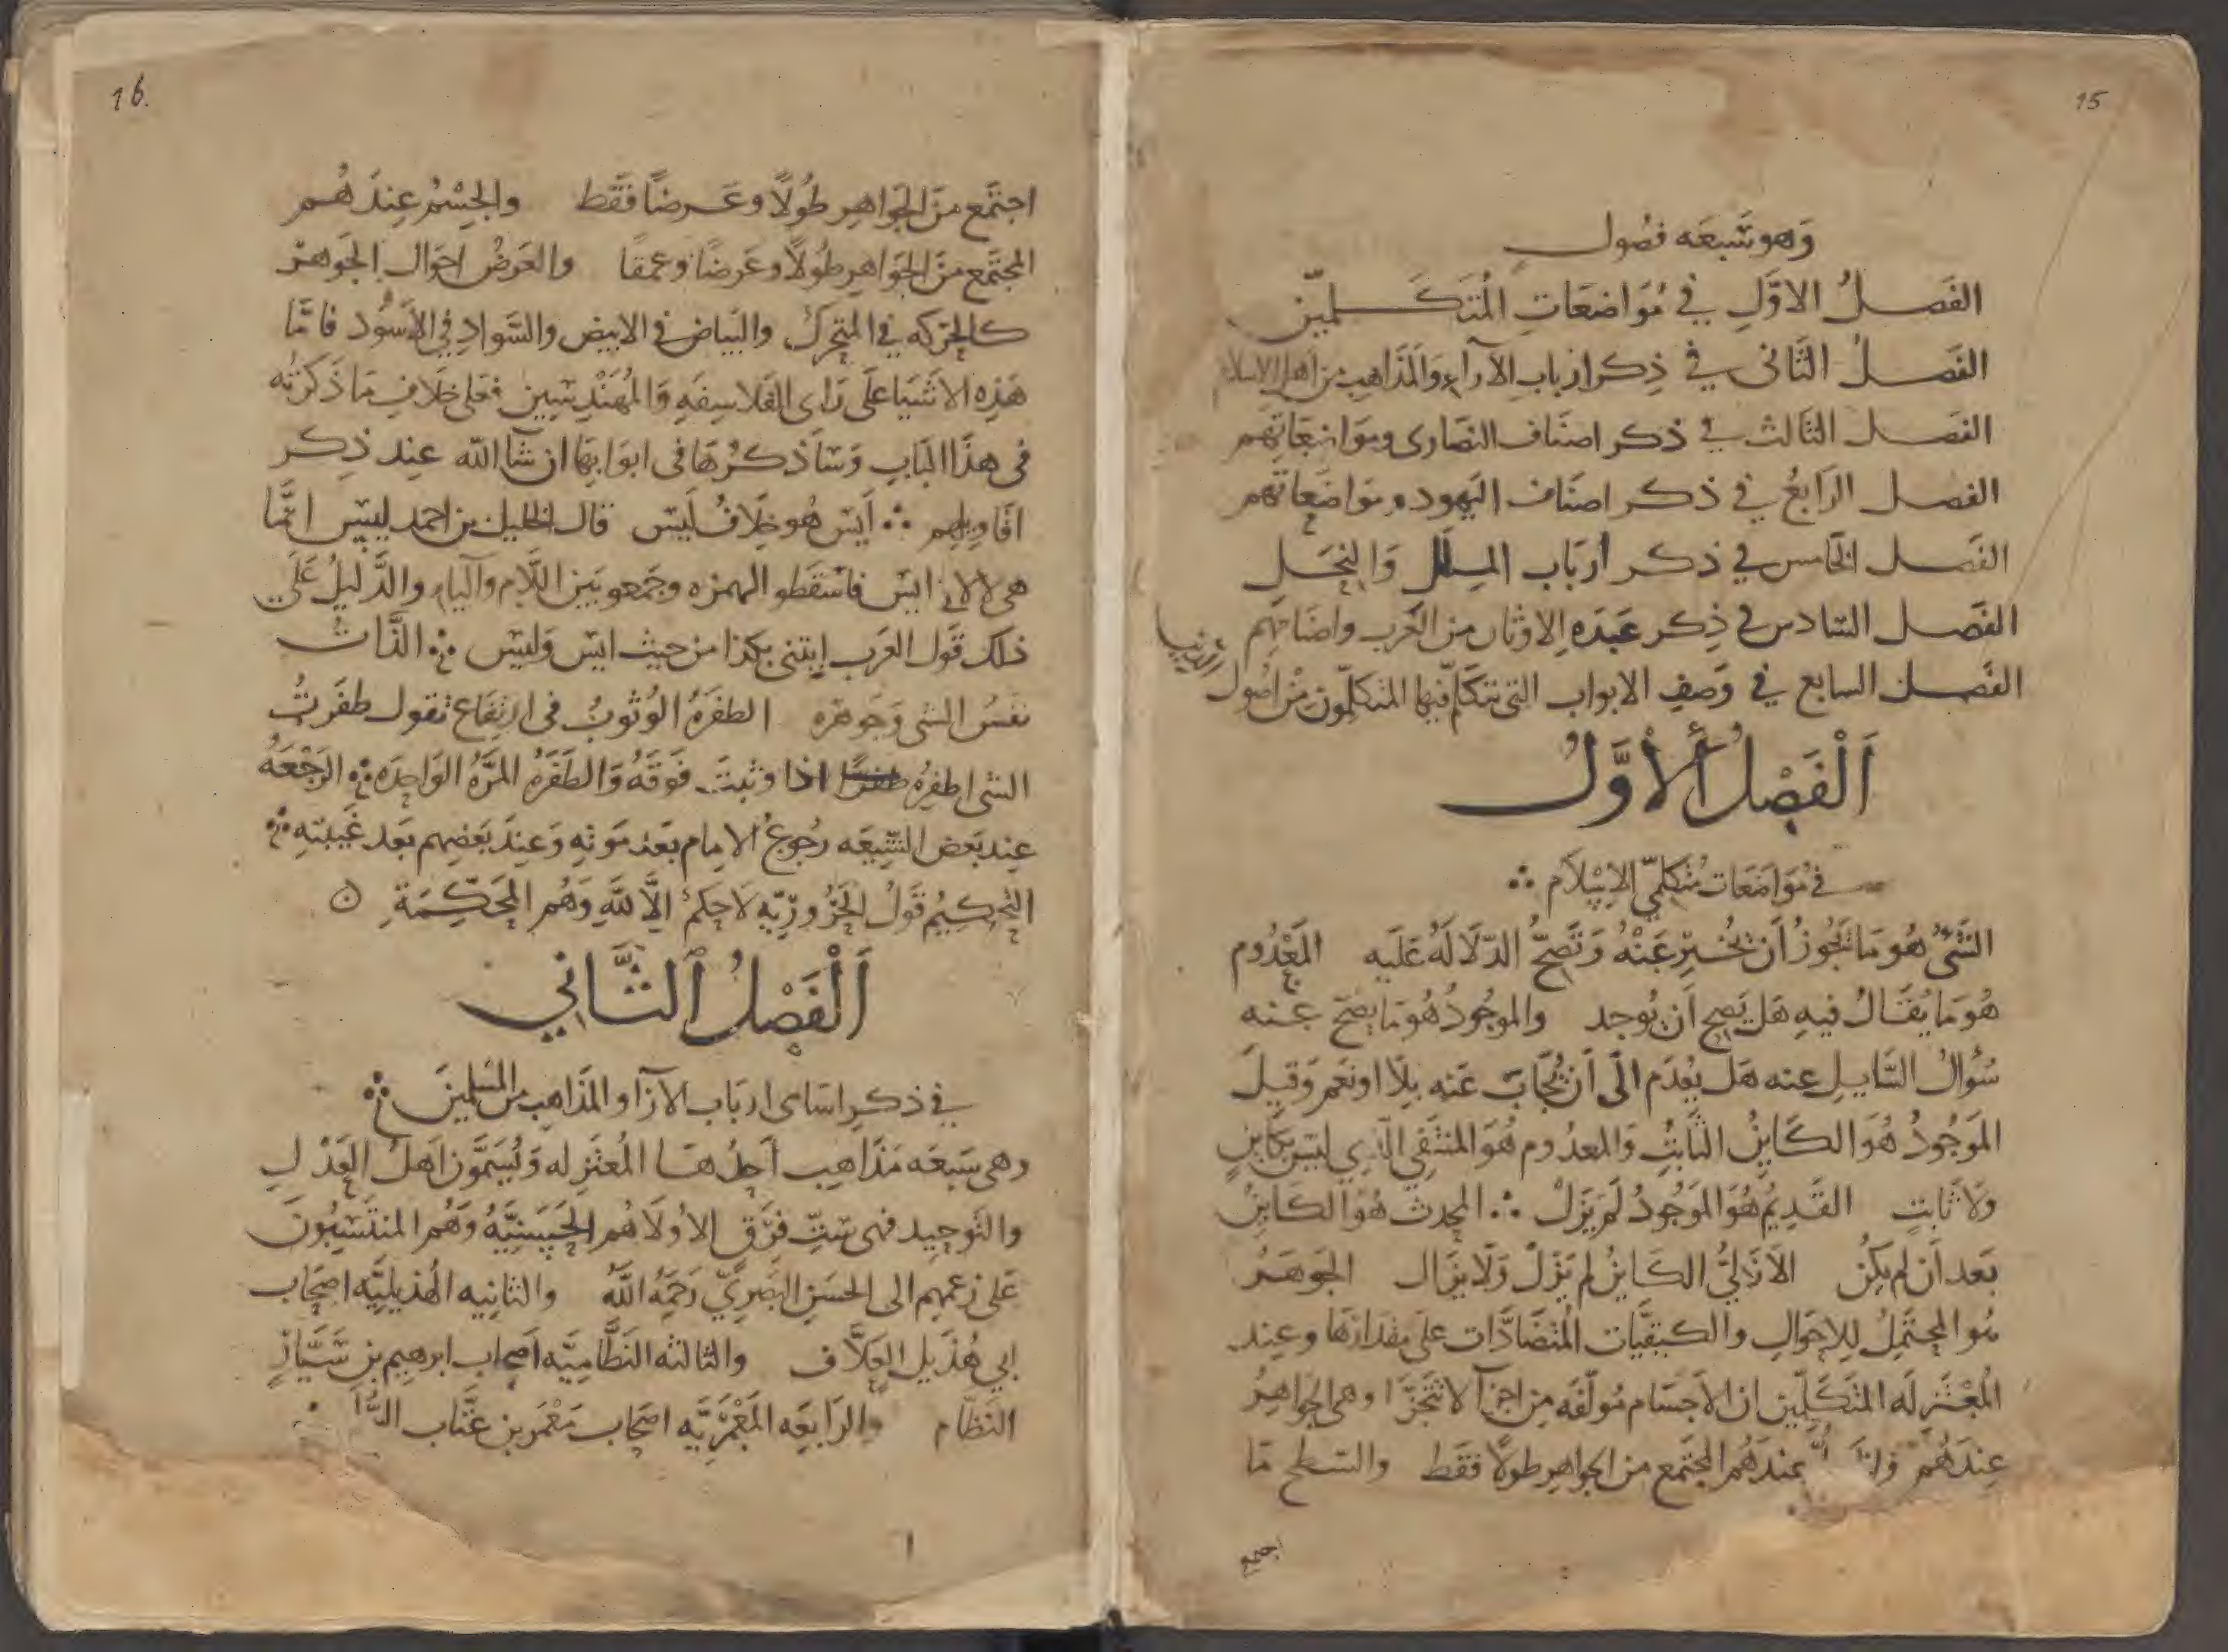 15
وَهو سَبعَه فصُول
الفَصلُ الاوَّلِ في مُوَاضعَاتِ المُتَكَلمّين
الفَصلُ الثَاني في ذِكر ارباب الآراءِ وَالمَذَاهِب من اهل الاسلام
الفصل الثالث في ذكر اصنَاف النصَارى ومَواضعَاتهم
الفصل الرَابعُ في ذكر اصنَاف اليَهود ومَواضعَاتهم
الفَصل الخَامس في ذكر أربَاب الملل وَالنِحَل
الفَصل السَادس في ذِكر عَبَدَه الاوثان من العَرب واصنَامِهم
الفَصل السابع في وَصفِ الابواب التي يتكلّم فيها المتكلّمون من اصُول
الدين
اَلْفَصْلُ أْلأَوَّلُ
في مُوَاضَعَات مُتكلميّ الاِسْلَام ∴
الشَيْءُ هُو مَا يَجُوزُ أَن يُخْبرِ عَنْهُ وَتَصحُّ الدّلَالَهُ عَلَيه المَعْدُوم
هُو مَا يُقَالُ فيهِ هَل يَصِح اَن يُوجد والموجُودُ هُو مَا يصَح عنه
سُؤالُ السَّايل عنه هَل يُعدَم الَى أَن يُجَابَ عَنه بلَا او نعَم وَقيلَ
الموَجُودُ هُوَ الكَايِنُ الثَابتُ وَالمعدُوم هُوَ المنتَفِي الّذِي ليَس بكَاينٍ
ولَا ثَابتٍ القَدِيُم هُوَ الموَجُودُ لَم يَزَلْ ∴ المحدث هُوَ الكَاينُ
بَعَد أَن لم يكُن الاَزَليُّ الكَاينُ لم يَزَلْ وَلَا يزَال الجَوهَرُ
هُو المحتَمِلُ لِلاحَوالِ والكيفيَّات المُتضَادَّات عَلى مقدَارهَا وعِند
المُعْتزلَه المتَكَلِمّين ان الاَجسَام مُولّفَه مِن اجزآ لا تَتَجَزَّا وهى الجَواهِرُ
عِندَهُمْ عِندَهُم المجتَمع من الجَواهِر طولًا فقَط والسَطح مَا
اجتمع
16.
اجتمَع منَ الجَوَاهِر طُولًا وعَرضًا فَقَط والجِسْمُ عِندَهُم
المجتَمع منَ الجوَاهِر طُولًا وعَرضًا وعمقًا والعَرضُ احوَال الجَوهر
كالحركه في المتحركِ والبَياض في الابيض والسَّوادِ في الأَسوُد فامَّا
هَذِه الاَشيَا عَلَى رَاى الفَلاسِفَهِ وَالمُهَنْدِسِين فعَلى خلَافِ مَا ذَكَرتُه
في هذَا البَابِ وَسَأذكرُهَا في ابوَابهَا ان شآ الله عِند ذِكر
اقَاويلهِم ∴ أَيسَ هُو خِلَافُ لَيسَ قال الخَليل بن احمد ليسَ انمَّا
هى لا اَيسَ فاَسَقطو الهمزه وجَمعو بَين اللَّام وَاليآء والدَّليلُ عَلَى
ذَلكَ قَول العَرب ايتني بكذا من حيث ايسَ وَليسَ ∴ الذَّاتُ
نفسُ الشى وَجوهَره الطفرَهُ الوُثوبُ في ارتفَاع تقول طفَرتُ
الشى اطفِرهُ طفرًا اذا وثبتَ فَوقَهُ وَالطَفَرَهُ المرَّهُ الوَاحِدَه ∴ الرَجْعَهُ
عِند بَعض الشِّيعَه رجُوعُ الامَام بَعدَ مَوتهِ وَعِندَ بَعضِهم بَعد غَيبَتهِ ∴
التحِكيمُ قَولُ الحَرُوريّه لَا حكمُ الَّا لله وَهُم المحَكّمَة ٥
اَلْفَصْلُ ٱلثَّانِي
في ذكرِ اسَامى اربَاب الآرَآ وَالمذَاهِب من المسلمينَ ∴
وهى سَبعَه مَذَاهِب أحدُهَا المُعتَزِله وَيُسَمَّون اَهلُ العَدْلِ
والتَوحِيد فهى سِتّ فِرَق الاُولَا هُم الحَسَنيَّهُ وَهُم المنتَسِبُونَ
عَلى زعمِهم الى الحَسَنِ البَصرِيّ رَحمَهُ اللهُ والثانيه الهُذيليَّه اصحَاب
ابي هُذَيل العَلاَّف والثالثه النَظَّاميَّه اَصحاب ابرهيم بن سَيَّارٍ
النَظّام والرَابعَه المَعْمَريَّه اصحَاب مَعْمَر بن عَبَّاب